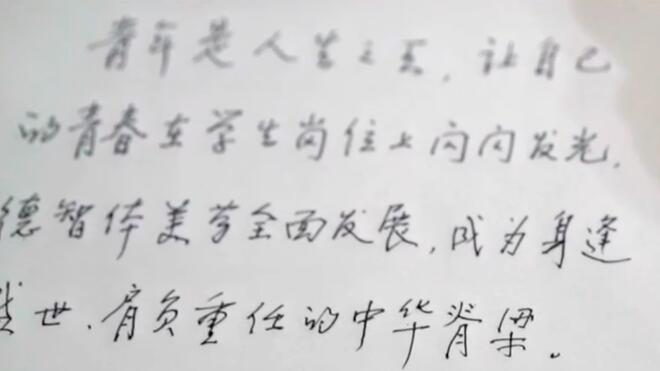 青年是人生之王，让自己
的青春在学生岗位上闪闪发光，
德智体美劳全面发展，成为身逢
盛世、肩负重任的中华脊梁。